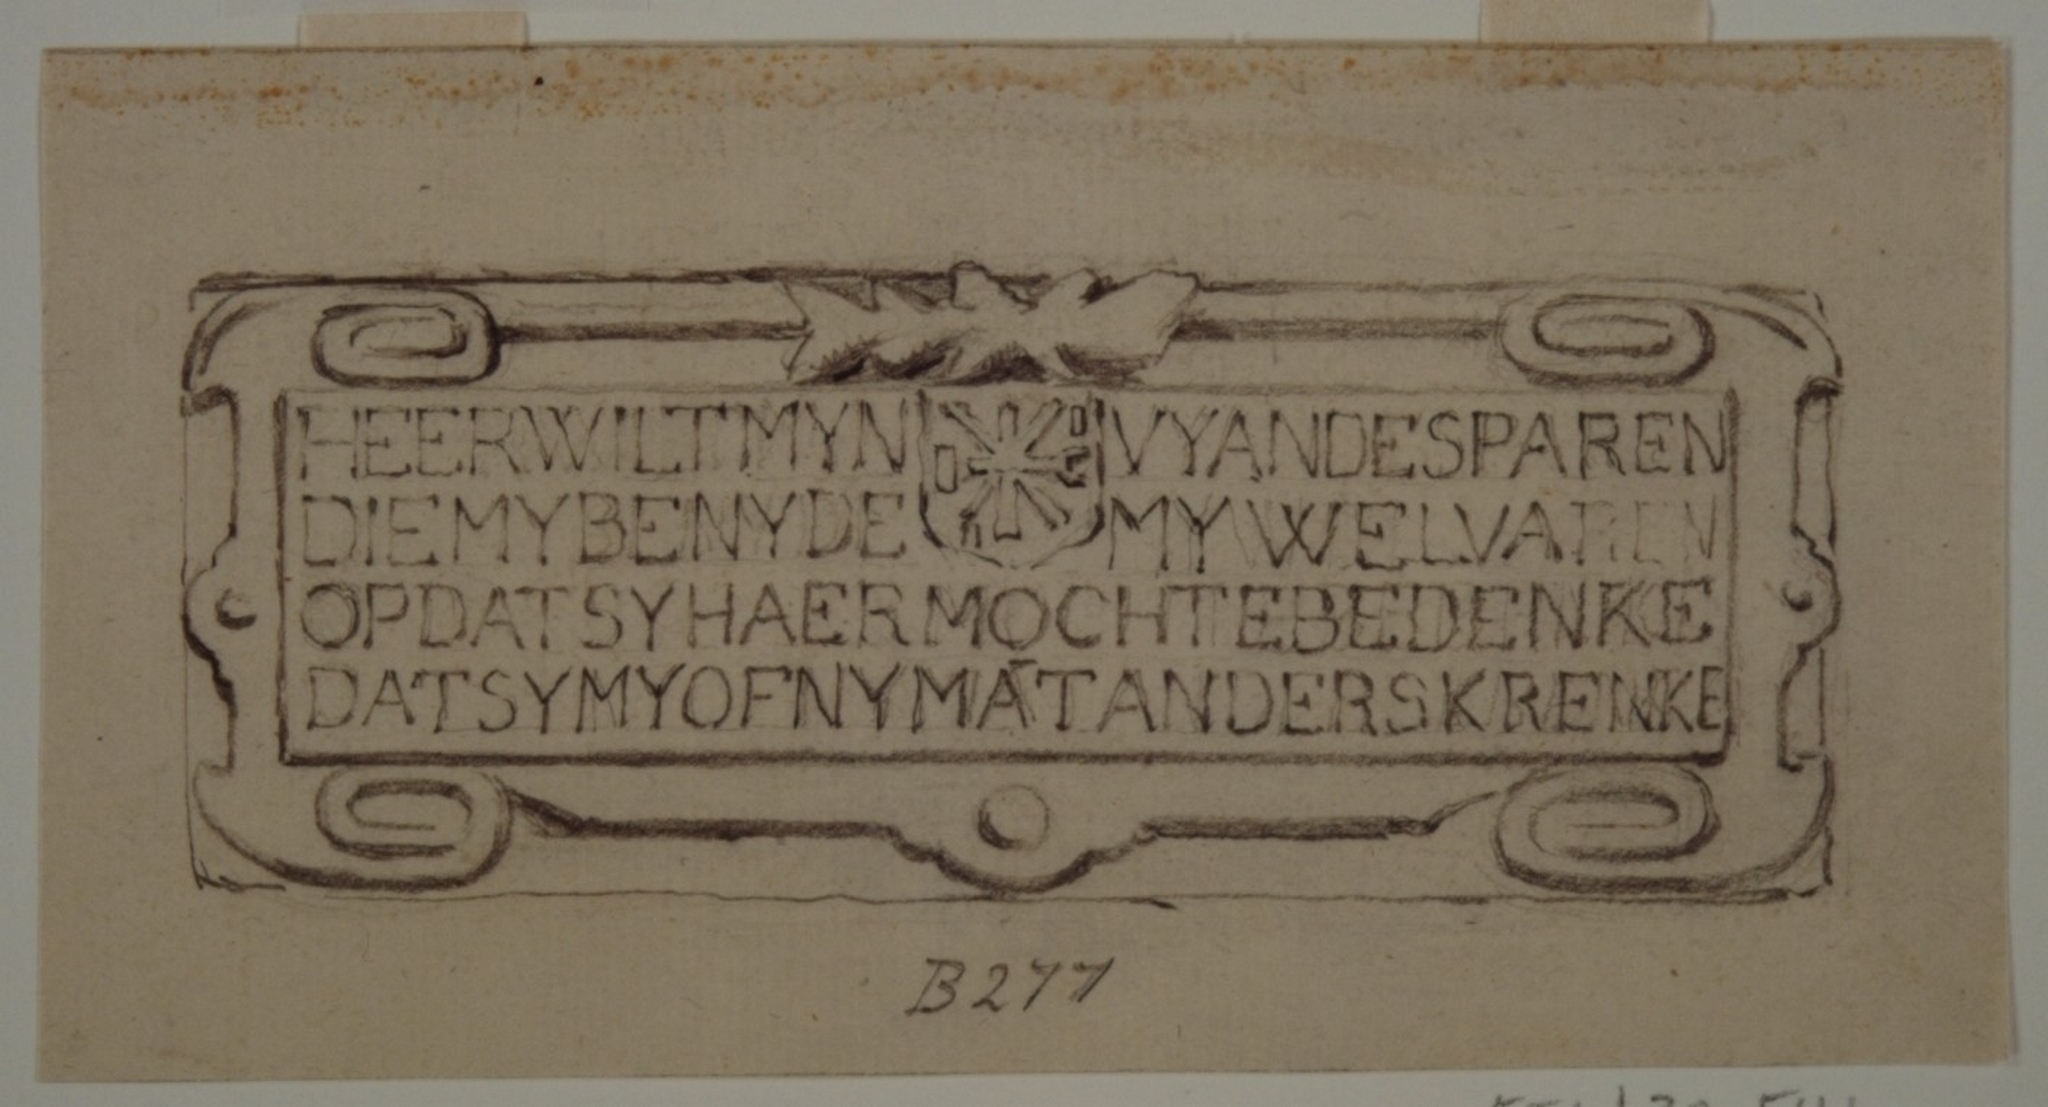 HEER WILT MYN VYANDE SPAREN
DIE MY BENYDE MY WELVAREN
OPDAT SY HAER MOCHTE BEDENKE
DAT SY MY OF NYMĀT ANDERS KRENKE
B277